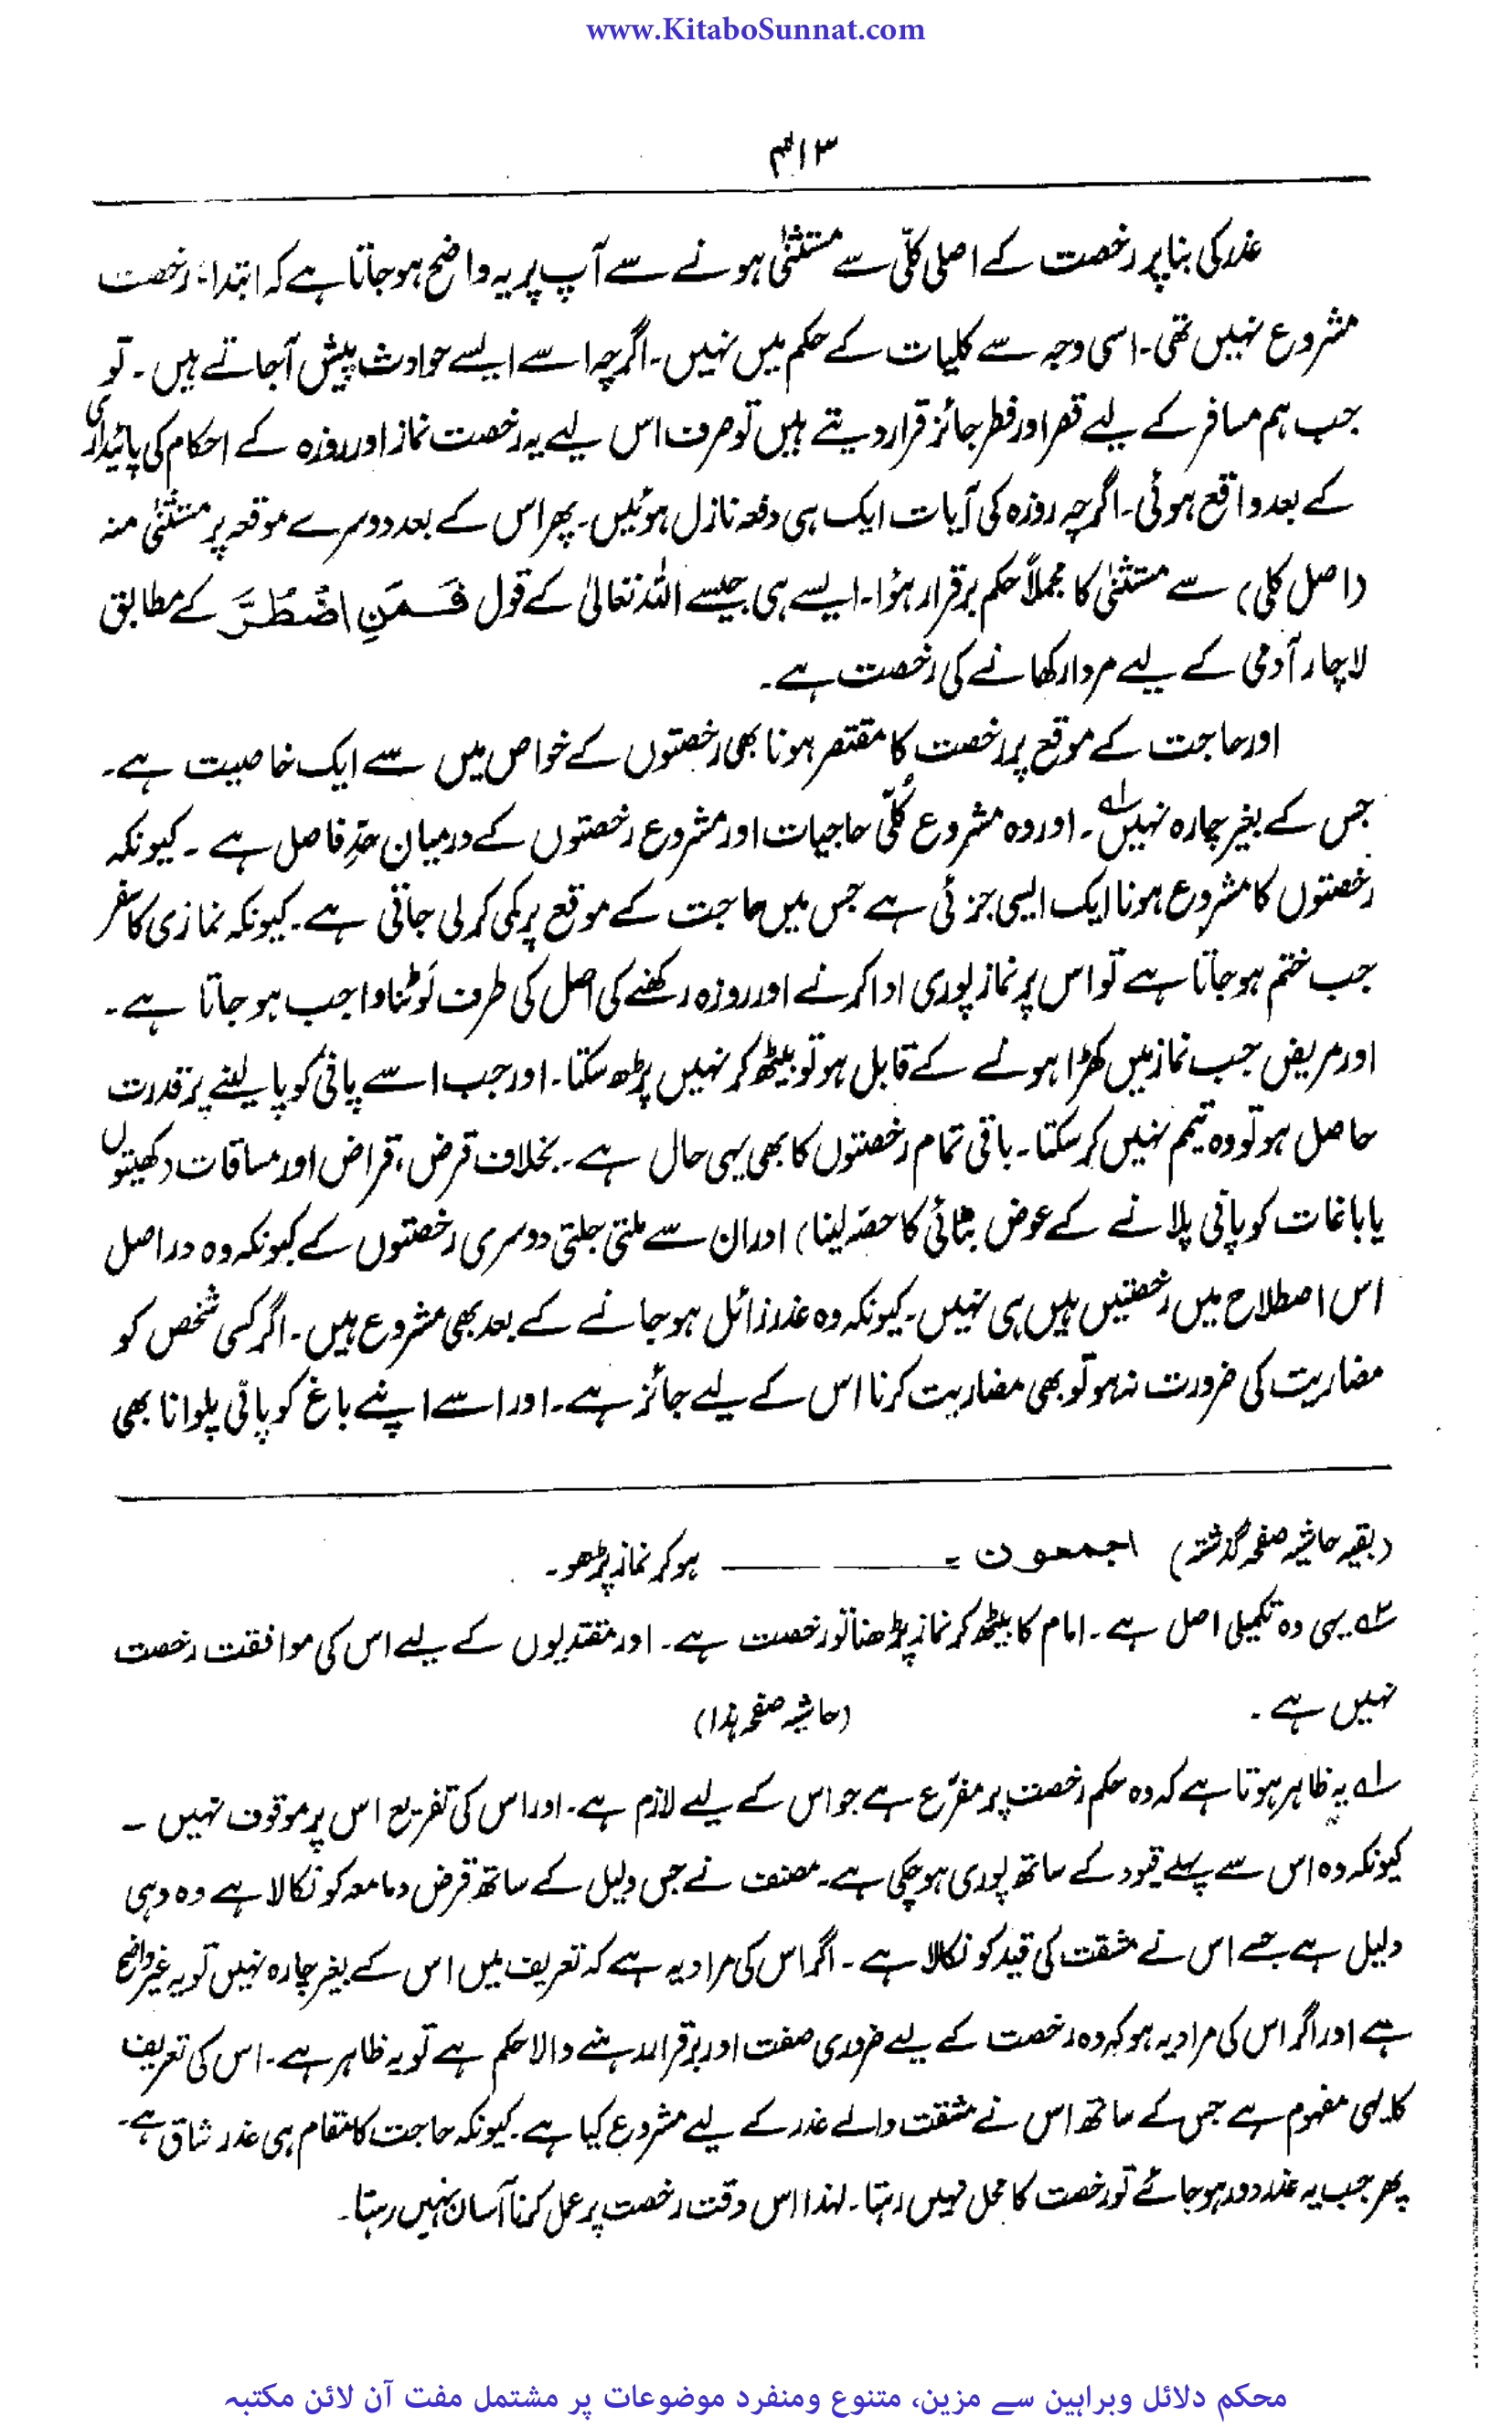 www.KitaboSunnat.com
۴۱۳
عذر کی بنا پر رخصت کے اصلی کلّی سے مستثنٰی ہونے سے آپ پر یہ واضح ہو جاتا ہے کہ ابتداءً رخصت
مشروع نہیں تھی۔ اسی وجہ سے کلیات کے حکم میں نہیں۔ اگرچہ اسے ایسے حوادث پیش آجاتے ہیں۔ تو
جب ہم مسافر کے لیے قصر اور فطر جائز قرار دیتے ہیں تو صرف اس لیے یہ رخصت نماز اور روزہ کے احکام کی پائیداری
کے بعد واقع ہوئی۔ اگرچہ روزہ کی آیات ایک ہی دفعہ نازل ہوئیں۔ پھر اس کے بعد دوسرے موقعہ پر مستثنٰی منہ
(اصل کلی) سے مستثنٰی کا مجملاً حکم برقرار ہؤا۔ ایسے ہی جیسے اللہ تعالیٰ کے قول فَمَنِ اضْطُرَّ کے مطابق
لاچار آدمی کے لیے مردار کھانے کی رخصت ہے۔
اور حاجت کے موقع پر رخصت کا مقتصر ہونا بھی رخصتوں کے خواص میں سے ایک خاصیت ہے۔
جس کے بغیر چارہ نہیں۱؎۔ اور وہ مشروع کُلّی حاجیات اور مشروع رخصتوں کے درمیان حدِّ فاصل ہے۔ کیونکہ
رخصتوں کا مشروع ہونا ایک ایسی جزئی ہے جس میں حاجت کے موقع پر کمی کر لی جاتی ہے۔ کیونکہ نمازی کا سفر
جب ختم ہو جاتا ہے تو اس پر نماز پوری ادا کرنے اور روزہ رکھنے کی اصل کی طرف لَوٹنا واجب ہو جاتا ہے۔
اور مریض جب نماز میں کھڑا ہونے کے قابل ہو تو بیٹھ کر نہیں پڑھ سکتا۔ اور جب اسے پانی کو پا لینے پر قدرت
حاصل ہو تو وہ تیمم نہیں کر سکتا۔ باقی تمام رخصتوں کا بھی یہی حال ہے۔ بخلاف قرض، قراض اور مساقات (کھیتوں
یا باغات کو پانی پلانے کے عوض بٹائی کا حصّہ لینا) اور ان سے ملتی جلتی دوسری رخصتوں کے کیونکہ وہ دراصل
اس اصطلاح میں رخصتیں ہیں ہی نہیں۔ کیونکہ وہ عذر زائل ہو جانے کے بعد بھی مشروع ہیں۔ اگر کسی شخص کو
مضاربت کی ضرورت نہ ہو تو بھی مضاربت کرنا اس کے لیے جائز ہے۔ اور اسے اپنے باغ کو پانی پلوانا بھی
(بقیہ حاشیہ صفحہ گذشتہ) اجمعون۔ ——— ——— ہو کر نماز پڑھو۔
۲؎ یہی وہ تکمیلی اصل ہے۔ امام کا بیٹھ کر نماز پڑھنا تو رخصت ہے۔ اور مقتدیوں کے لیے اس کی موافقت رخصت
نہیں ہے۔ (حاشیہ صفحہ ہذا)
۱؎ یہ ظاہر ہوتا ہے کہ وہ حکم رخصت پر مفرّع ہے جو اس کے لیے لازم ہے۔ اور اس کی تفریع اس پر موقوف نہیں۔
کیونکہ وہ اس سے پہلے قیود کے ساتھ پوری ہو چکی ہے۔ مصنف نے جس دلیل کے ساتھ قرض ومامعہ کو نکالا ہے وہ وہی
دلیل ہے جسے اس نے مشقت کی قید کو نکالا ہے۔ اگر اس کی مراد یہ ہے کہ تعریف میں اس کے بغیر چارہ نہیں تو یہ غیر واضح
ہے اور اگر اس کی مراد یہ ہو کہ وہ رخصت کے لیے ضروری صفت اور برقرار رہنے والا حکم ہے تو یہ ظاہر ہے۔ اس کی تعریف
کا یہی مفہوم ہے جس کے ساتھ اس نے مشقت والے عذر کے لیے مشروع کیا ہے۔ کیونکہ حاجت کا مقام ہی عذر شاق ہے۔
پھر جب یہ عذر دور ہو جائے تو رخصت کا محل نہیں رہتا۔ لہٰذا اس وقت رخصت پر عمل کرنا آسان نہیں رہتا۔
محکم دلائل وبراہین سے مزین، متنوع ومنفرد موضوعات پر مشتمل مفت آن لائن مکتبہ